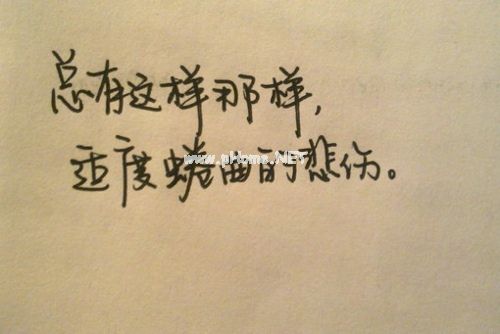 总有这样那样，
适度蜷曲的悲伤。
www.pHome.NET